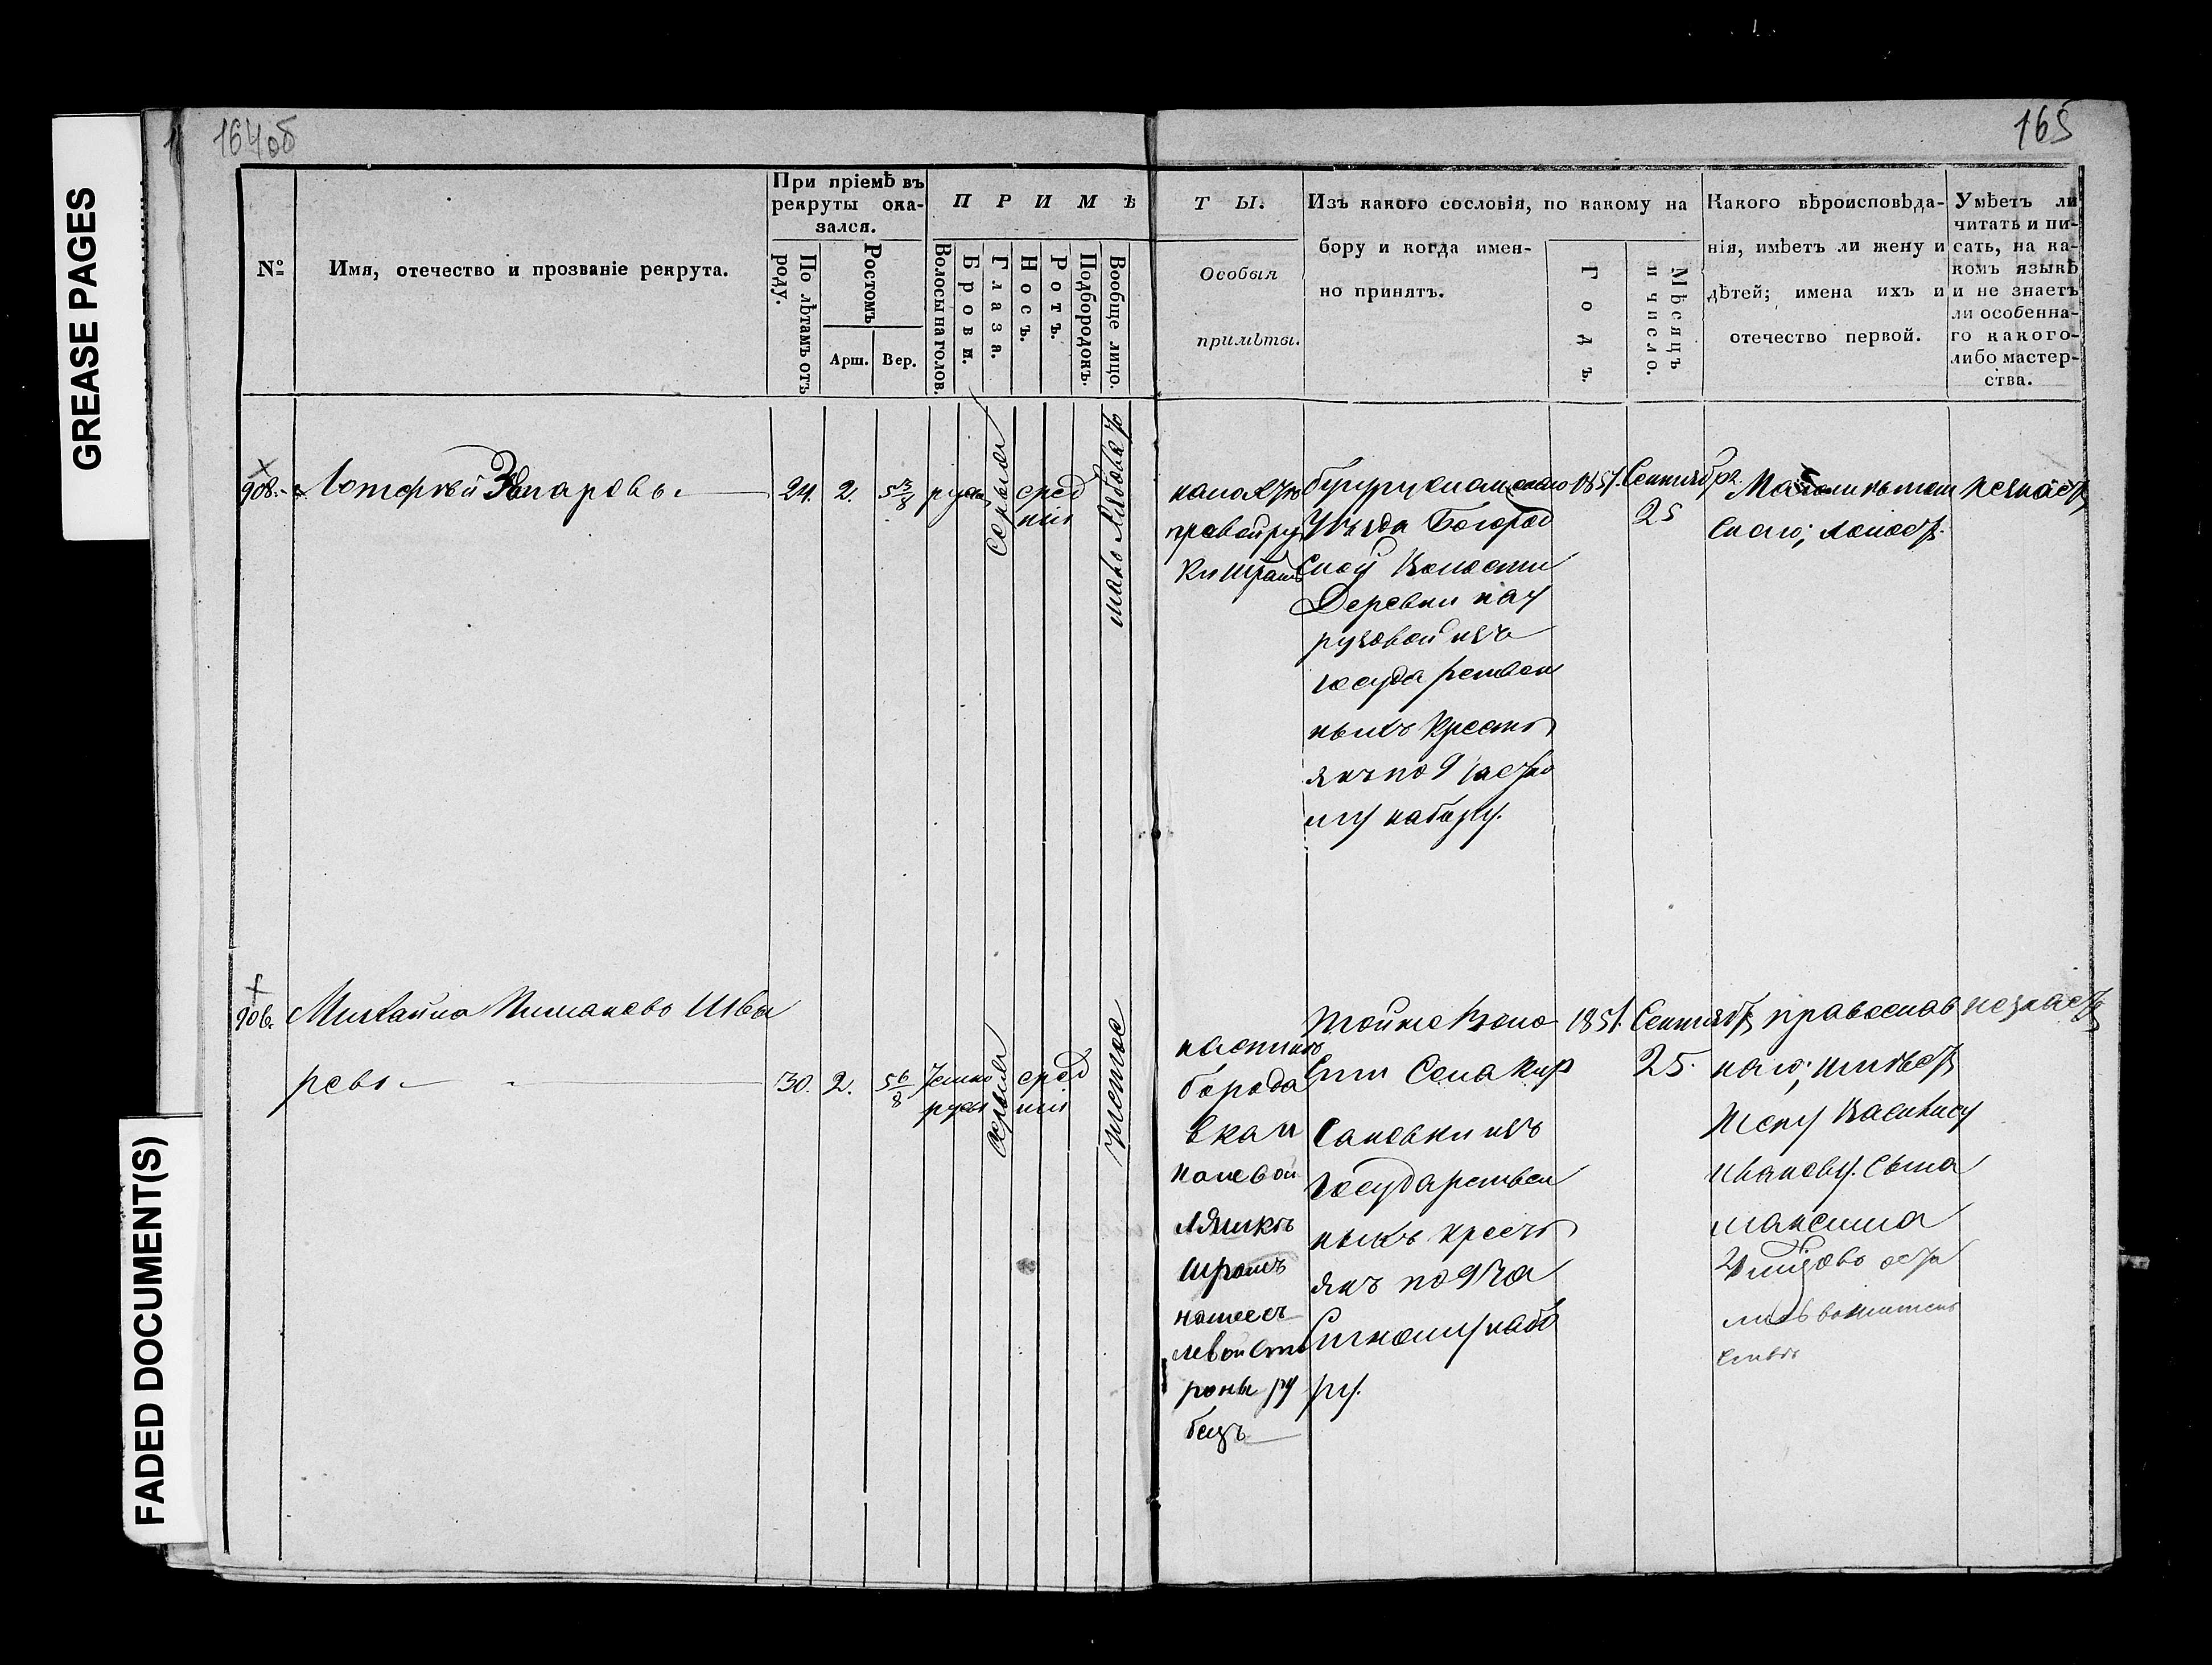 GREASE PAGES
FADED DOCUMENT(S)
164об
165
№
Имя, отечество и прозваніе рекрута.
При пріемѣ въ
рекруты ока-
зался.
По лѣтамъ отъ
роду.
Ростомъ
Арш.
Вер.
П Р И М Ѣ
Волосы на голов.
Брови.
Глаза.
Носъ.
Ротъ.
Подбородокъ.
Вообще лицо.
Т Ы.
Особыя
примѣты.
Изъ какого сословія, по какому на
бору и когда имен-
но принятъ.
Годъ.
Мѣсяцъ
и число.
Какого вѣроисповѣда-
нія, имѣетъ ли жену и
дѣтей; имена ихъ и
отечество первой.
Умѣетъ ли
читать и пи-
сать, на ка-
комъ языкѣ
и не знаетъ
ли особенна-
го какого-
либо мастер-
ства.
908.
24.
2.
5 3/8
русы
серые
сред
ніи
правой ру
ки шрамъ
Бугурусланскаго
Уѣзда Богород
ской Волости
Деревни
изъ
государствен
ныхъ крестья
янъ по 9 частно
му набору.
1851.
Сентября
25
Магометан
скаго; холостъ.
незнаетъ
906.
Михайло Шва
ревъ
30.
2.
5 6/8
темно
русы
серые
сред
ніи
чистое
борода
шрамъ
левой сто
роны ру
бецъ
Тойже воло
сти Села Кир
сановки изъ
государствен
ныхъ кресть
янъ по 9 ча
стному набо
ру.
1851.
Сентяб
25.
православ
наго; имѣетъ
жену Василису
Иванову. Сына
Максима
незнаетъ